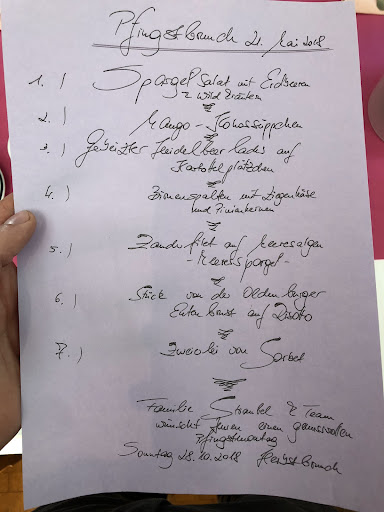 Pfingstbrunch 21. Mai 2018
1.) Spargelsalat mit Erdbeeren
& Wildkräutern
2.) Mango-Kokossüppchen
3.) Gebeizter Heidelbeerlachs auf
Kartoffelplätzchen
4.) Birnenspalten mit Ziegenkäse
und Pinienkernen
5.) Zanderfilet auf Meeresalgen
- Meeresspargel -
6.) Stück von der Oldenburger
Entenbrust auf Risotto
7.) Zweierlei von Sorbet
Familie & Team
wünscht Ihnen einen genussvollen
Pfingstmontag
Sonntag 28.10.2018 Herbstbrunch